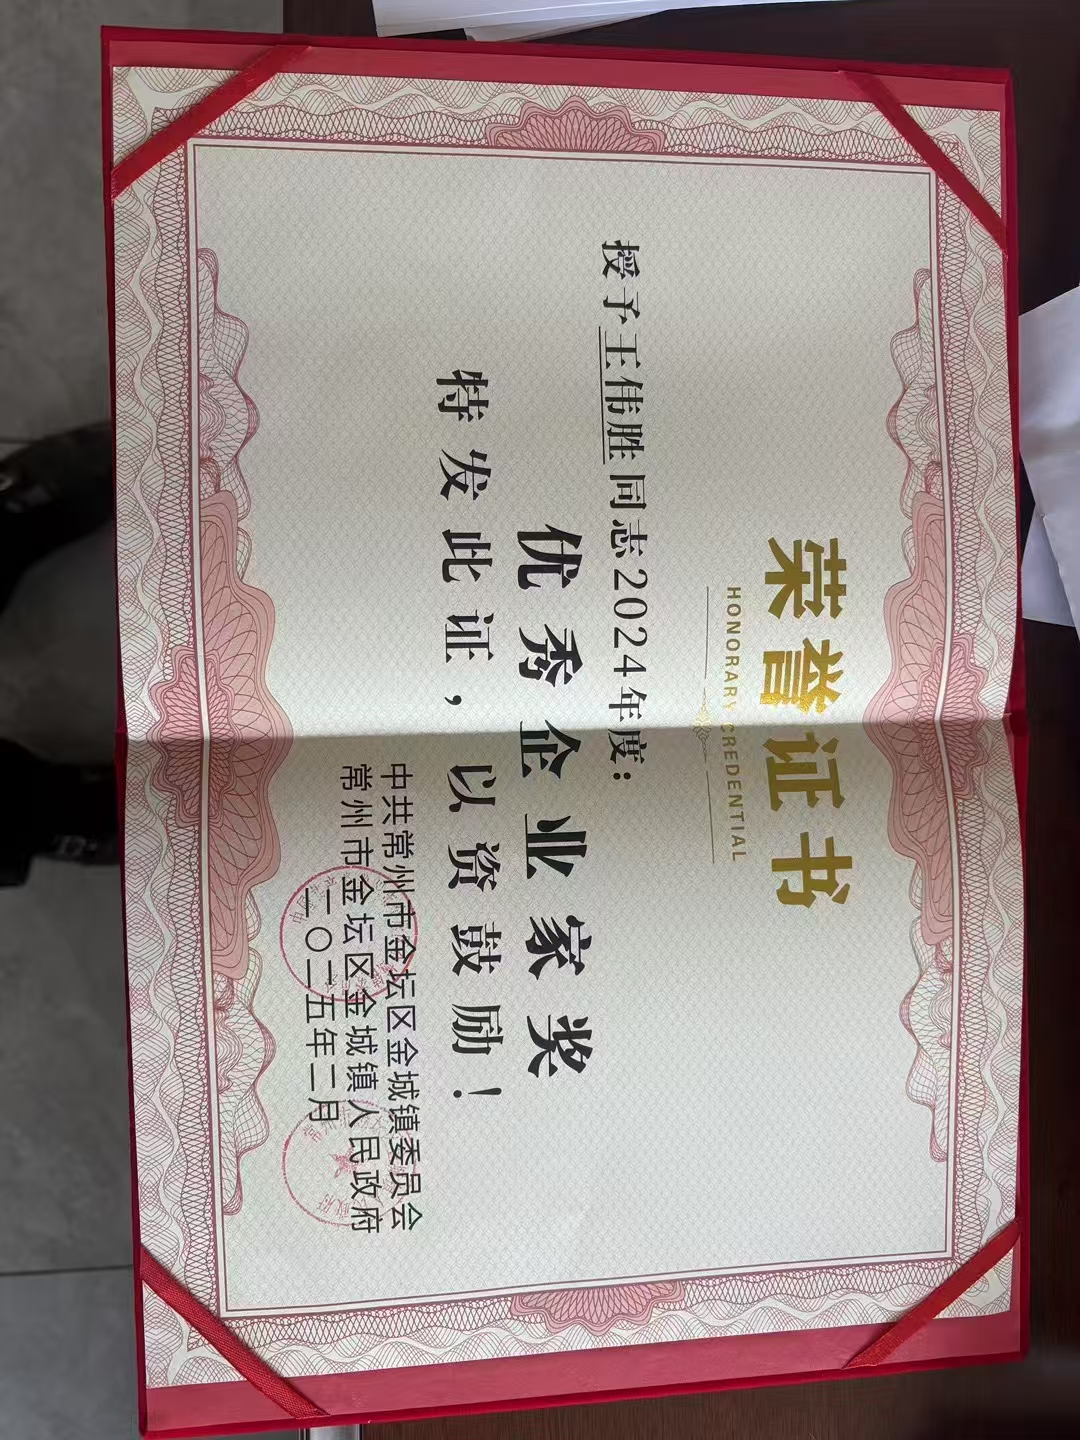 荣誉证书
HONORARY CREDENTIAL
授予王伟胜同志2024年度：
优秀企业家奖
特发此证，以资鼓励！
中共常州市金坛区金城镇委员会
常州市金坛区金城镇人民政府
二〇二五年二月